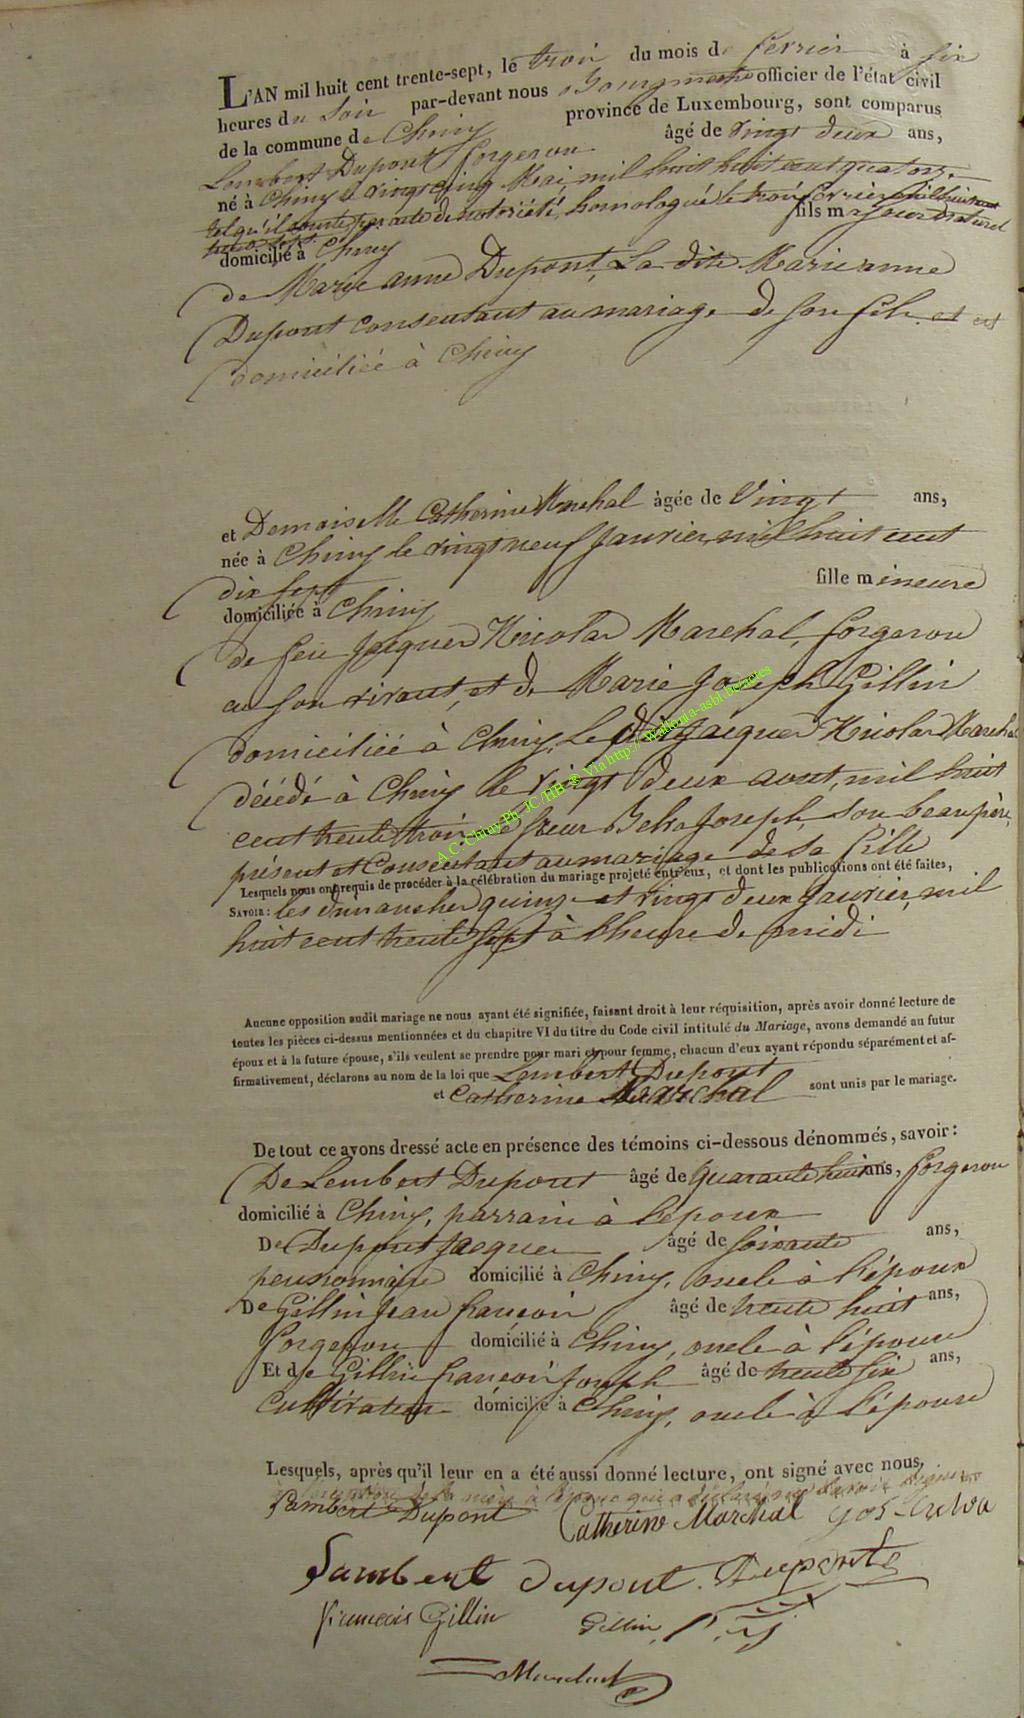 L'AN mil huit cent trente-sept, le trois du mois de fevrier à six
heures du soir par-devant nous Bourgmestre officier de l'état civil
de la commune de Chiny province de Luxembourg, sont comparus
Lambert Dupont forgeron âgé de vingt deux ans,
né à Chiny le vingt cinq Mai, mil huit huit cent quatorze
tel qu'il conste par acte de notoriété, homologué le trois fevrier mil huit cent
trente sept. fils majeur naturel
domicilié à Chiny
de Marie anne Dupont, La dite Marie anne
Dupont consentant au mariage de son fils et est
domiciliée à Chiny
et Demoiselle Catherine Marchal âgée de Vingt ans,
née à Chiny le vingt neuf Janvier mil huit cent
dix sept fille mineure
domiciliée à Chiny
de feu Jacques Nicolas Marchal, forgeron
en son vivant, et de Marie Joseph Gillin
domiciliée à Chiny, Le dit Jacques Nicolas Marchal
décédé à Chiny le vingt deux aout, mil huit
cent trente trois, le sieur Joseph, son beaupère,
présent et Consentant au mariage de sa fille
Lesquels nous ont requis de procéder à la célébration du mariage projeté entr'eux, et dont les publications ont été faites,
SAVOIR: les dimanches quinze et vingt deux Janvier, mil
huit cent trente sept à l'heure de midi
Aucune opposition audit mariage ne nous ayant été signifiée, faisant droit à leur réquisition, après avoir donné lecture de
toutes les pièces ci-dessus mentionnées et du chapitre VI du titre du Code civil intitulé du Mariage, avons demandé au futur
époux et à la future épouse, s'ils veulent se prendre pour mari et pour femme, chacun d'eux ayant répondu séparément et af-
firmativement, déclarons au nom de la loi que Lambert Dupont
et Catherine Marchal sont unis par le mariage.
De tout ce avons dressé acte en présence des témoins ci-dessous dénommés, savoir:
De Lambert Dupont âgé de quarante huit ans, forgeron
domicilié à Chiny, parrain à l'époux
De Dupont Jacques âgé de soixante ans,
pensionnaire domicilié à Chiny, oncle à l'époux
De Gillin Jean françois âgé de trente huit ans,
forgeron domicilié à Chiny, oncle à l'épouse
Et de Gillin françois Joseph âgé de trente six ans,
Cultivateur domicilié à Chiny, oncle à l'épouse
Lesquels, après qu'il leur en a été aussi donné lecture, ont signé avec nous,
de la mère à l'époux qui a déclaré ne savoir signer
Lambert Dupont Catherine Marchal
Lambert Dupont. Duponts
François Gillin Gillin
A.C. Chiny Ph. JC/HB ® Via http://Wallonia-asbl.be/actes